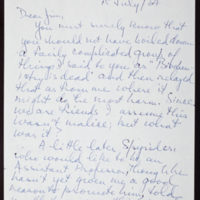 Dear Jim,
You must surely know that
you should not have boiled down
a fairly complicated group of
things I said to you as "
is dead" and then relayed
that as from me where it
might do the most harm. Since
we are friends I assume this
wasn't malice; but what
was it?
A little later Spyridon
who would like to be an
Assistant Professor, though he
hasn't yet given me a good
reason to promote him, told